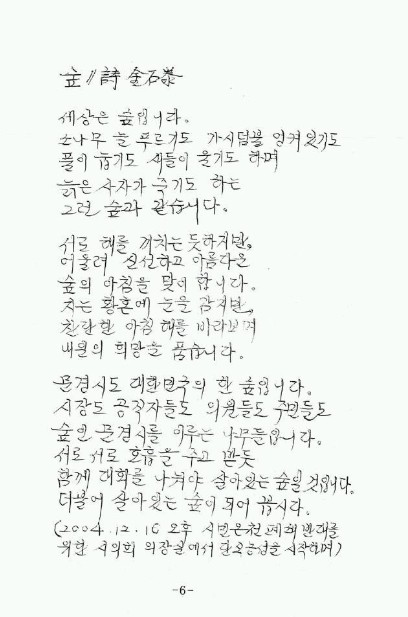 숲 // 詩 金石泰
세상은 숲입니다.
소나무 늘 푸르기도 가시덤불 엉켜있기도
풀이 눕기도 새들이 울기도 하며
늙은 사자가 죽기도 하는
그런 숲과 같습니다.
서로 해를 끼치는 듯하지만,
어울려 신선하고 아름다운
숲의 아침을 맞이 합니다.
지는 황혼에 눈을 감지만,
찬란한 아침 해를 바라보며
내일의 희망을 품습니다.
문경시도 대한민국의 한 숲입니다.
시장도 공직자들도 의원들도 주민들도
숲인 문경시를 이루는 나무들입니다.
서로 서로 호흡을 주고 받듯
함께 대화를 나눠야 살아있는 숲일 것입니다.
더불어 살아있는 숲이 되어 봅시다.
(2004.12.16 오후 시민온천 폐쇄 반대를
위한 시의회 의장실에서 단식농성을 시작하며)
-6-